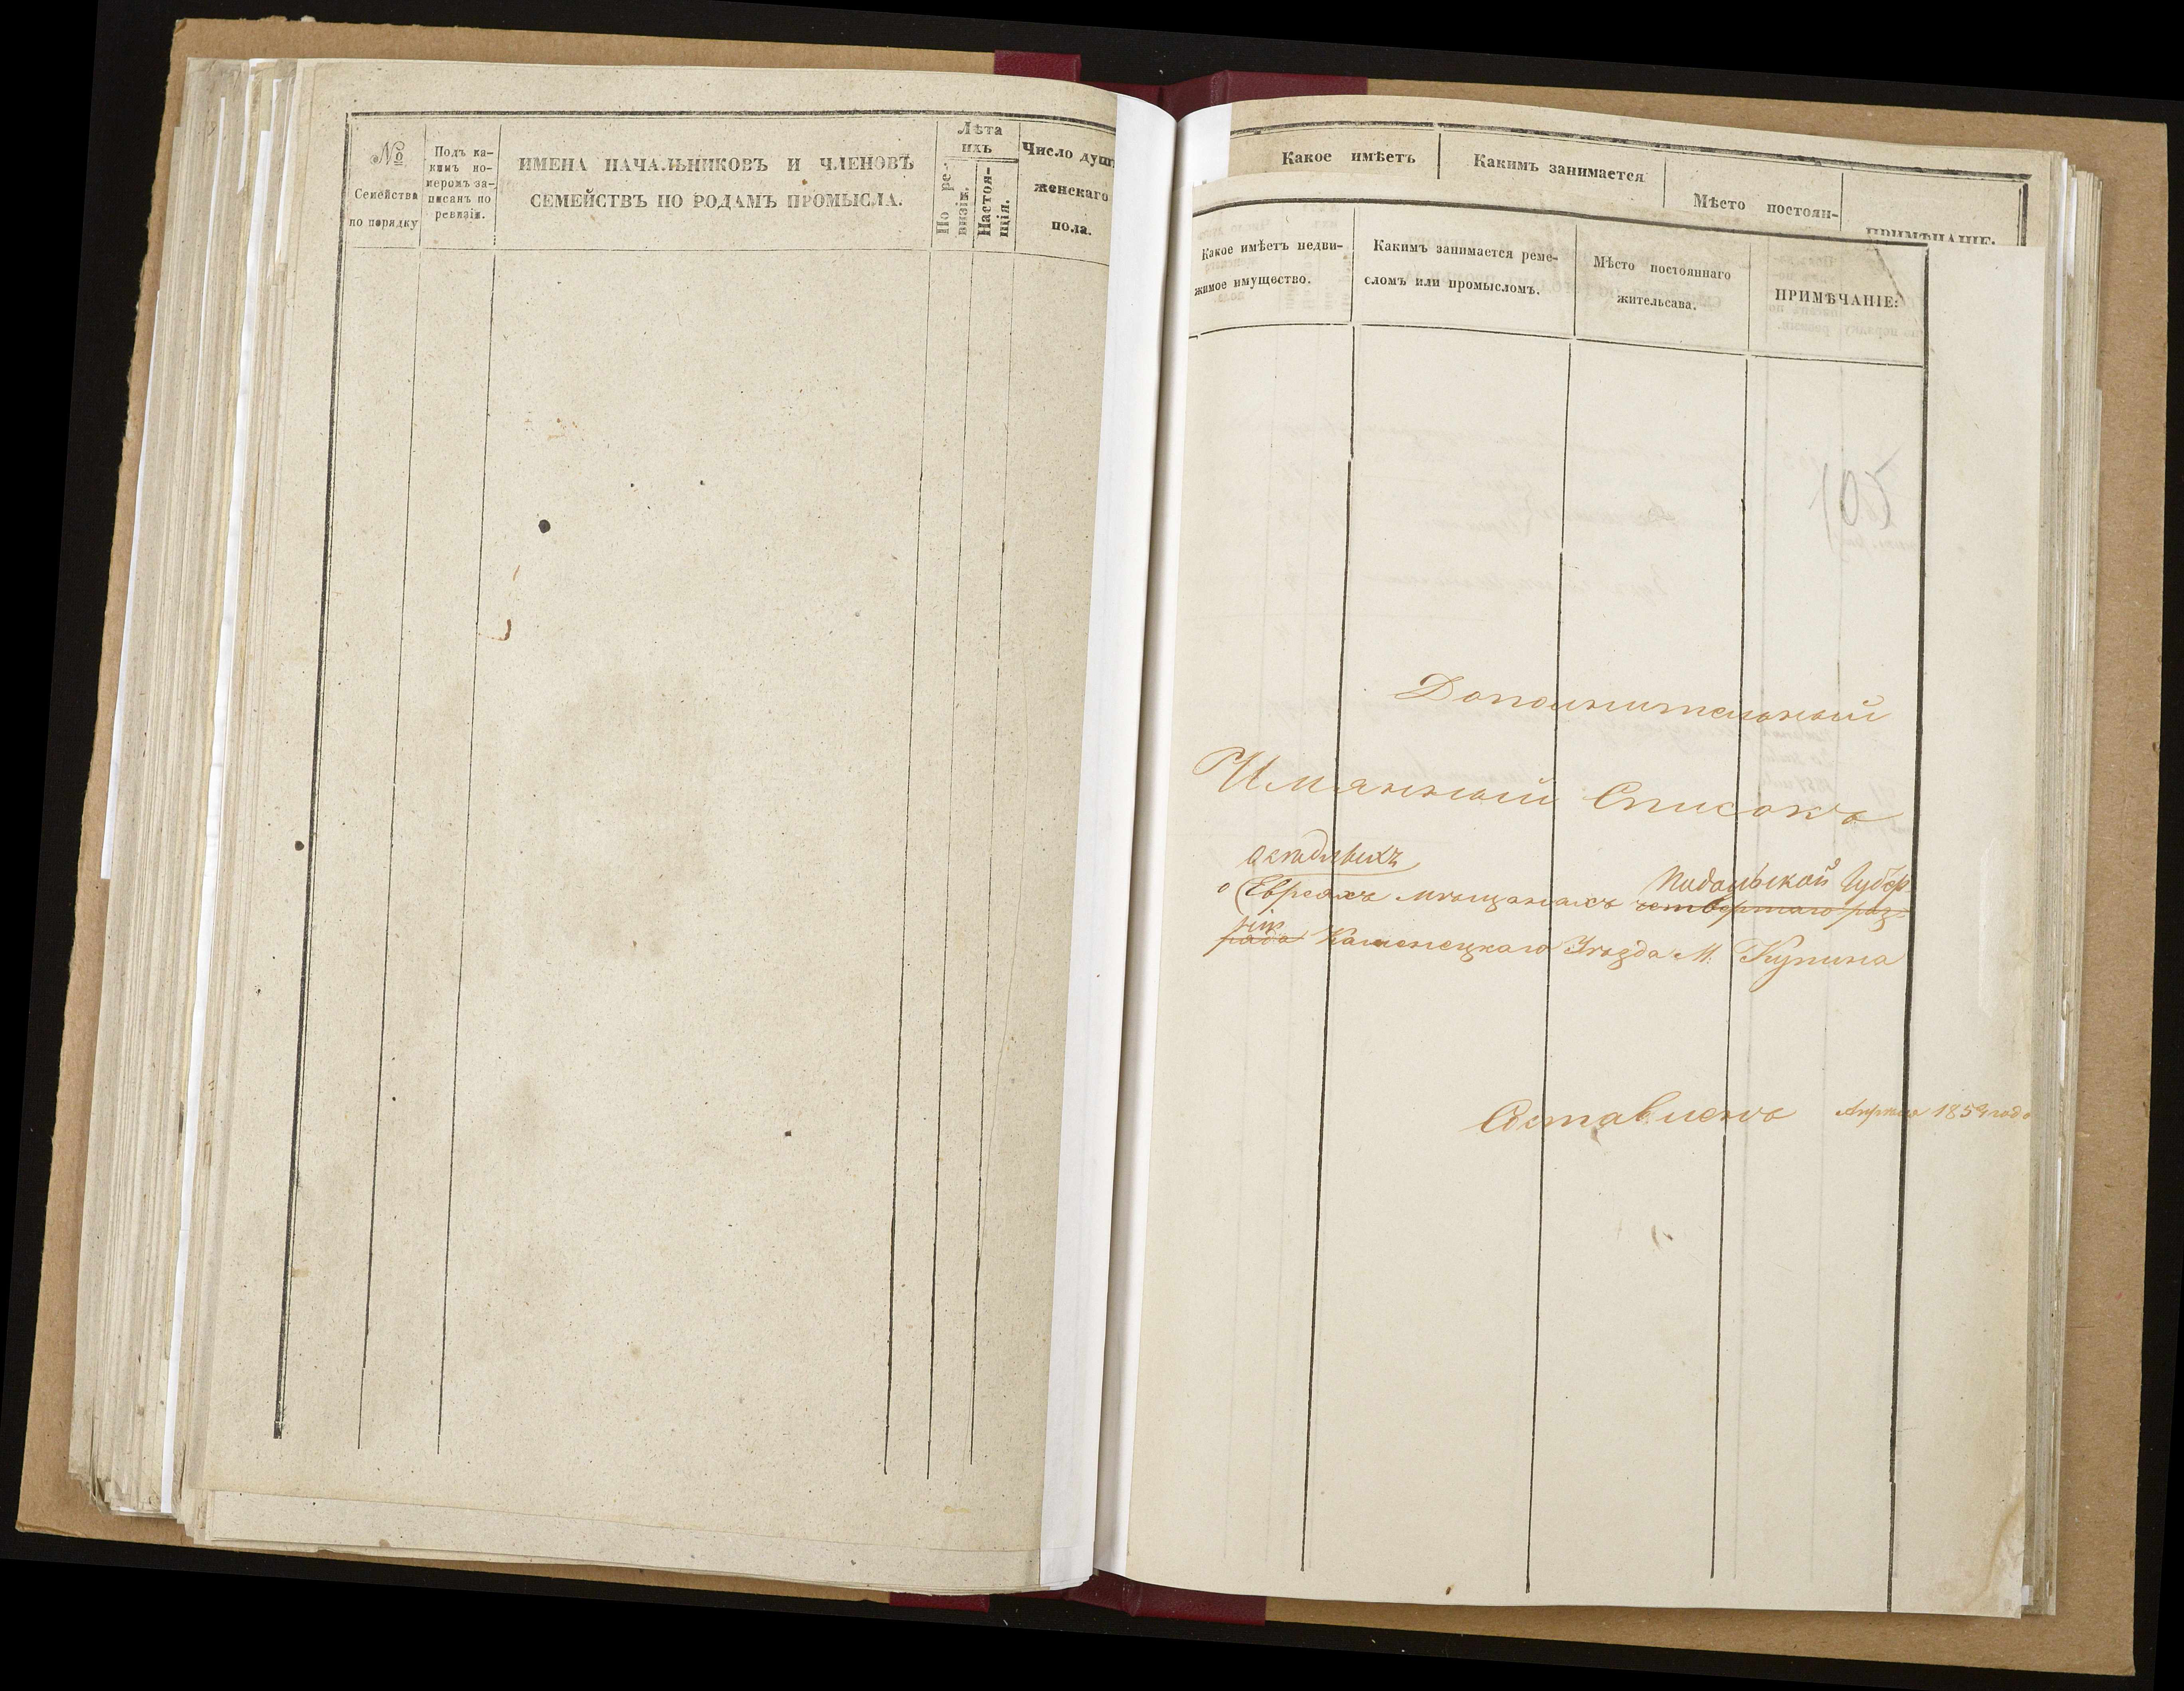 №
Семейства
по порядку
Подъ ка-
кимъ но-
меромъ за-
писанъ по
ревизіи.
ИМЕНА НАЧАЛЬНИКОВЪ И ЧЛЕНОВЪ
СЕМЕЙСТВЪ ПО РОДАМЪ ПРОМЫСЛА.
Лѣта
ихъ
По ре-
визіи.
Настоя-
щія.
Число душъ
женскаго
пола.
Какое имѣетъ
Какимъ занимается
Мѣсто постоян-
ПРИМѢЧАНІЕ:
Какое имѣетъ недви-
жимое имущество.
Какимъ занимается реме-
сломъ или промысломъ.
Мѣсто постояннаго
жительсава.
ПРИМѢЧАНІЕ:
105
Дополнительный
Имянный Списокъ
осѣдлыхъ
о Евреяхъ мѣщанахъ четвертаго раз-
Подольской Губер
ніи
ряда Каменецкаго Уѣзда М. Купина
Составленъ Апреля 1854 года